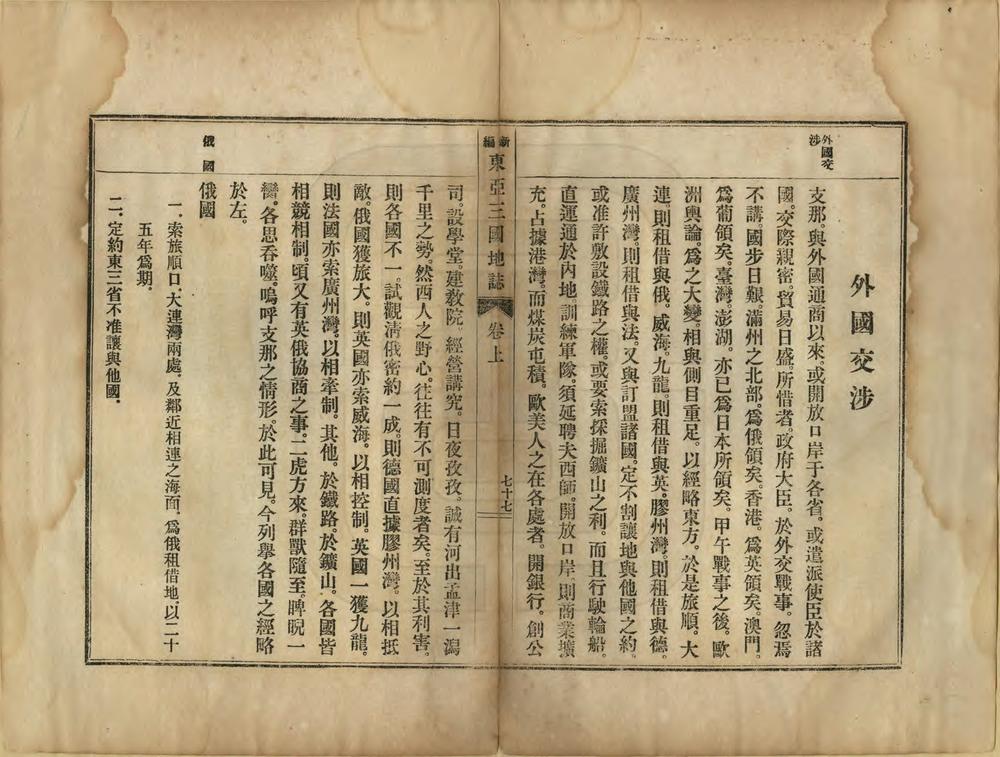 外國交涉
外國交涉
支那。與外國通商以來。或開放口岸于各省。或遣派使臣於諸
國。交際親密。貿易日盛。所惜者。政府大臣。於外交戰事。忽焉
不講。國步日艱。滿州之北部。爲俄領矣。香港。爲英領矣。澳門。
爲葡領矣。臺灣。澎湖。亦已爲日本所領矣。甲午戰事之後。歐
洲輿論。爲之大變。相與側目重足。以經略東方。於是旅順。大
連。則租借與俄。威海。九龍。則租借與英。膠州灣。則租借與德。
廣州灣。則租借與法。又與訂盟諸國。定不割讓地與他國之約。
或准許敷設鐵路之權。或要索採掘鑛山之利。而且行駛輪船。
直運通於內地。訓練軍隊。須延聘夫西師。開放口岸。則商業壤
充。占據港灣。而煤炭屯積。歐美人之在各處者。開銀行。創公
新編
東亞三國地誌
卷上
七十七
司。設學堂。建敎院。經營講究。日夜孜孜。誠有河出孟津一瀉
千里之勢。然西人之野心。往往有不可測度者矣。至於其利害。
則各國不一。試觀淸俄密約一成。則德國直據膠州灣。以相抵
敵。俄國獲旅大。則英國亦索威海。以相控制。英國一獲九龍。
則法國亦索廣州灣。以相牽制。其他。於鐵路。於鑛山。各國皆
相競相制。頃又有英俄協商之事。二虎方來。群獸隨至。睥睨一
臠。各思吞噬。嗚呼支那之情形。於此可見。今列擧各國之經略
於左。
俄國
俄國
一．索旅順口．大連灣兩處．及鄰近相連之海面．爲俄租借地．以二十
五年爲期．
二．定約東三省不准讓與他國．